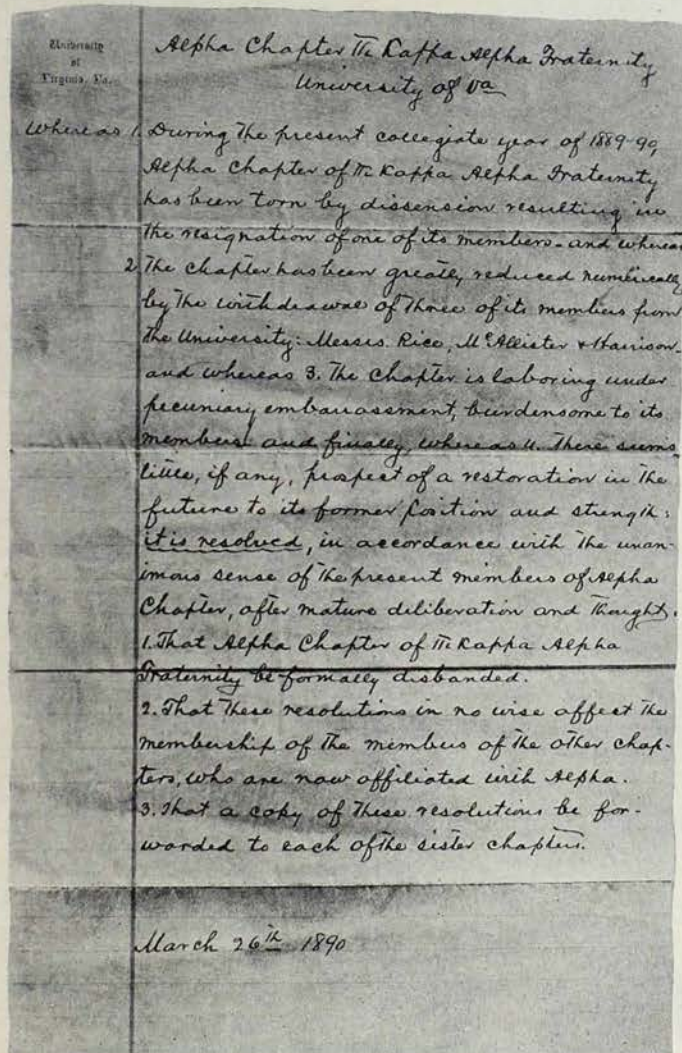 University
of
Virginia, Va.
Alpha Chapter Π Kappa Alpha Fraternity
University of Va
Whereas 1. During the present collegiate year of 1889-90,
Alpha Chapter of Π Kappa Alpha Fraternity
has been torn by dissension resulting in
the resignation of one of its members - and whereas
2. The chapter has been greatly reduced numerically
by the withdrawal of three of its members from
the University: Messrs. Rice, McAllister & Harrison -
and whereas 3. The chapter is laboring under
pecuniary embarrassment, burdensome to its
members and finally, whereas 4. There seems
little, if any, prospect of a restoration in the
future to its former position and strength:
it is resolved, in accordance with the unan-
imous sense of the present members of Alpha
Chapter, after mature deliberation and thought.
1. That Alpha Chapter of Π Kappa Alpha
Fraternity be formally disbanded.
2. That these resolutions in no wise affect the
membership of the members of the other chap-
ters, who are now affiliated with Alpha.
3. That a copy of these resolutions be for-
warded to each of the sister chapters.
March 26th 1890